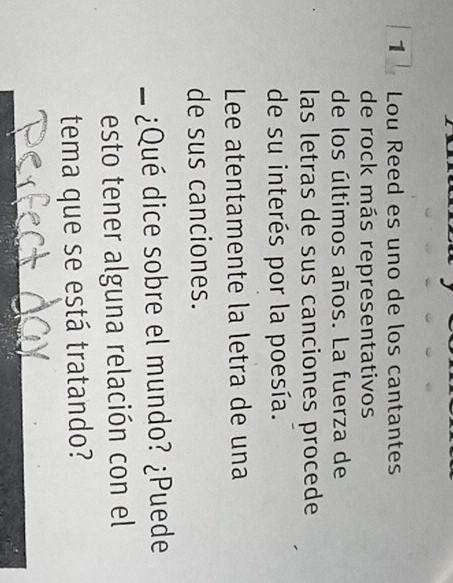 1 Lou Reed es uno de los cantantes
de rock más representativos
de los últimos años. La fuerza de
las letras de sus canciones procede
de su interés por la poesía.
Lee atentamente la letra de una
de sus canciones.
– ¿Qué dice sobre el mundo? ¿Puede
esto tener alguna relación con el
tema que se está tratando?
Perfect day